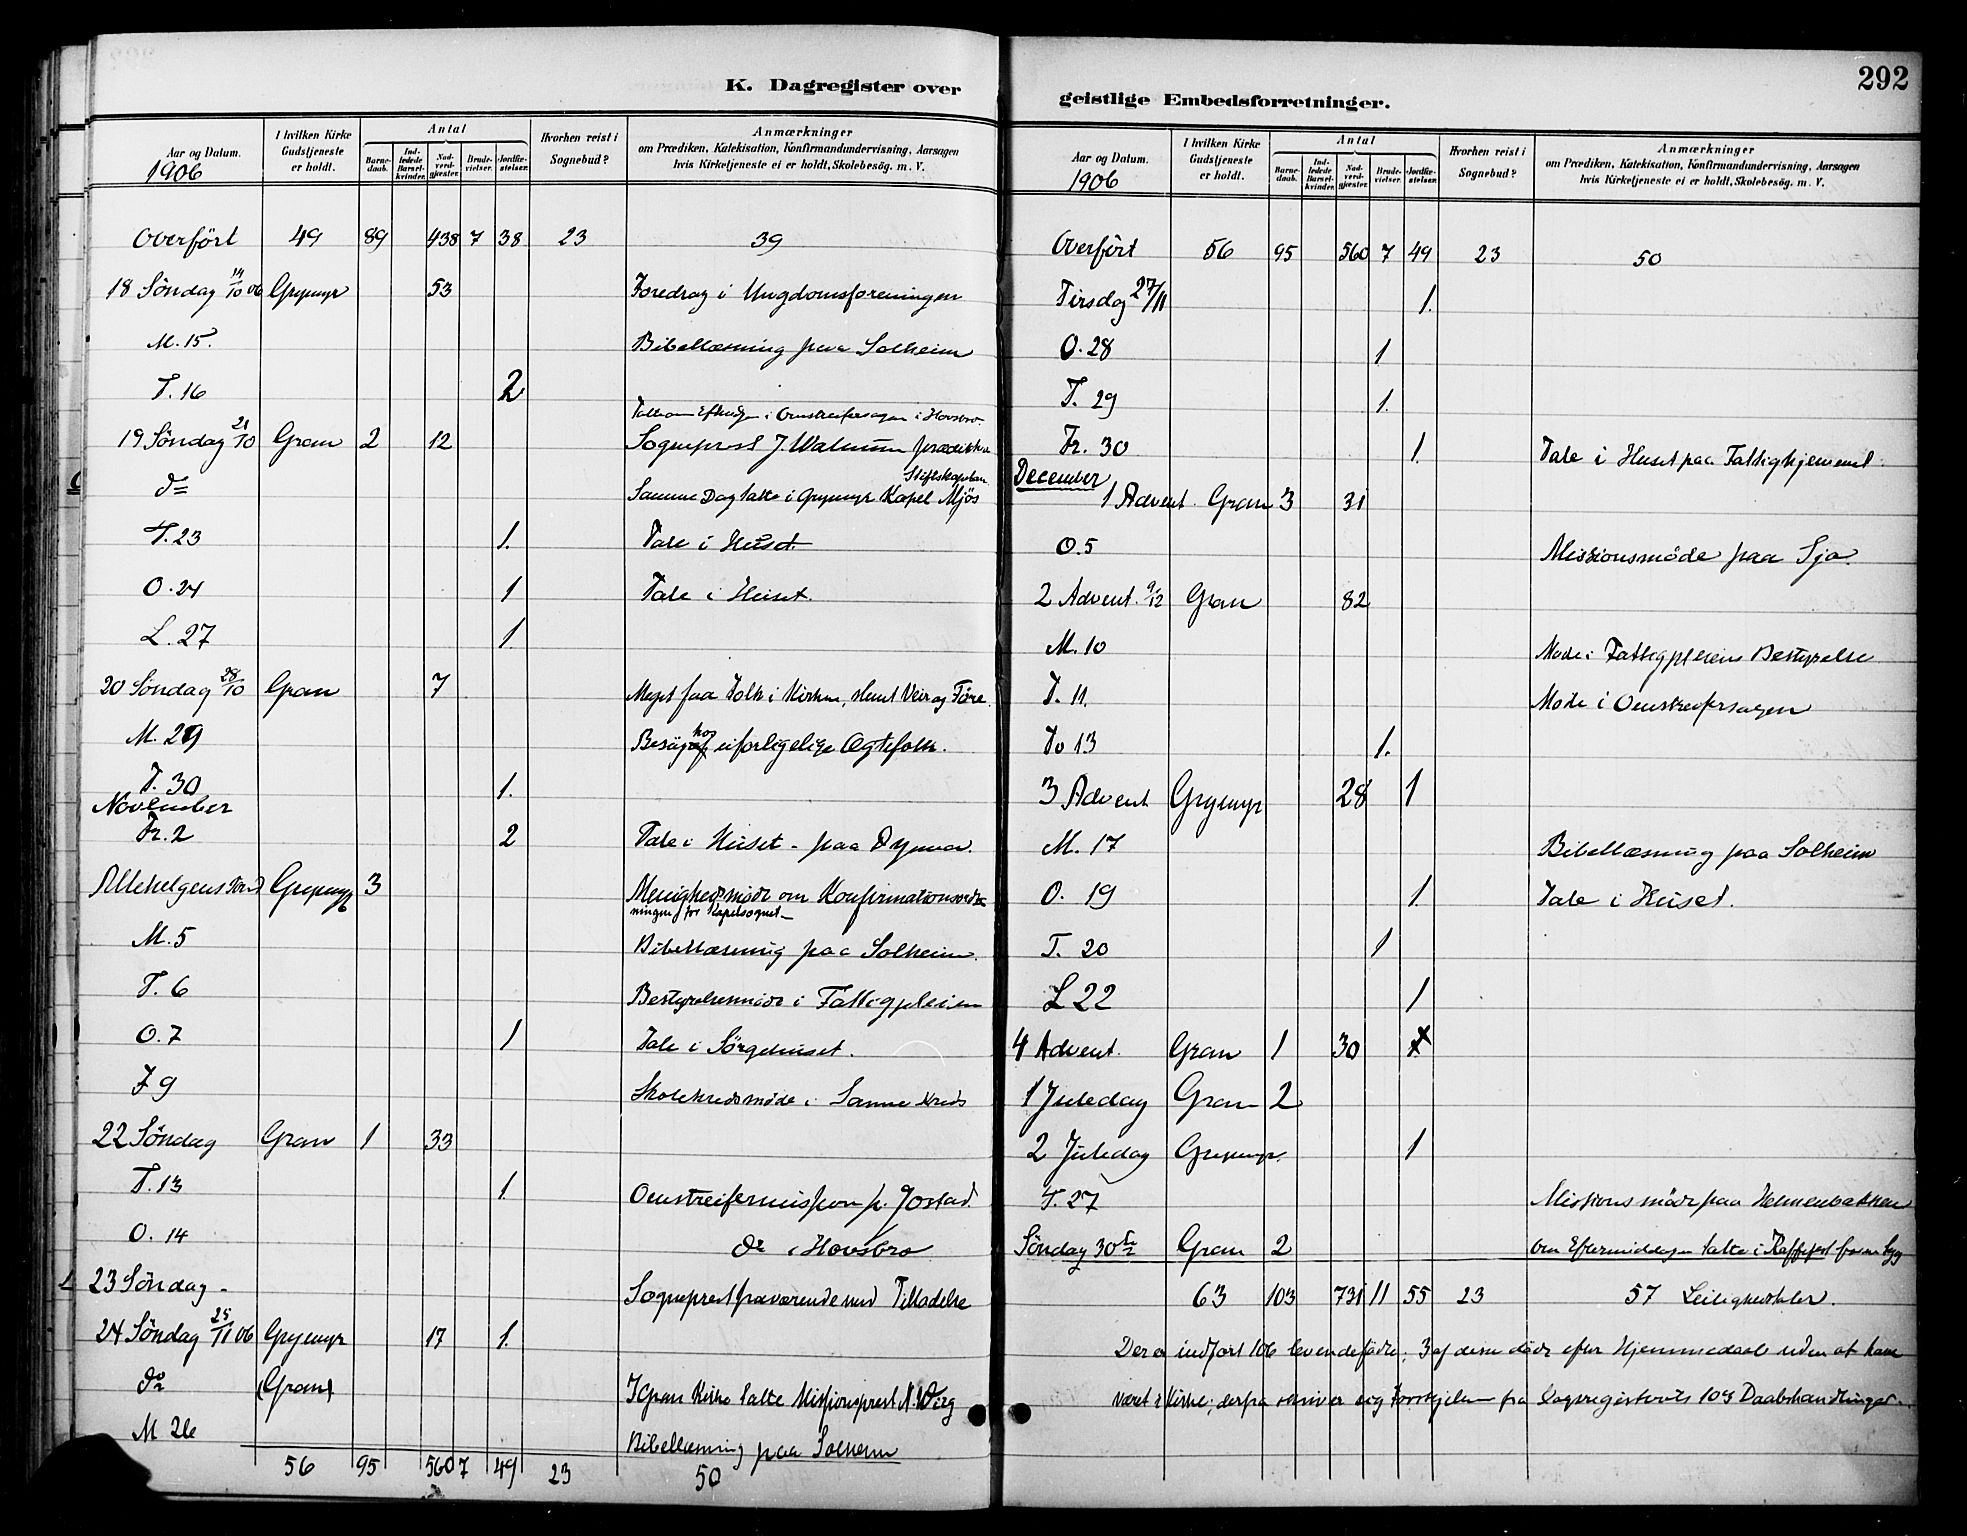 K. Dagregister over
Aar og Datum.
1906
I hvilken Kirke Gudstjeneste er holdt.
Antal
Barnedaab.
Indledede Barselkvinder.
Nadverdgjæster.
Brudevielser.
Jordfæstelser.
Hvorhen reist i Sognebud?
Anmærkninger
om Prædiken, Katekisation, Konfirmandundervisning, Aarsagen
hvis Kirketjeneste ei er holdt, Skolebesög. m. V.
Overført 49 89 438 7 38 23 39
18 Søndag 14/10 06 Grymyr 53 Foredrag i Ungdomsforeningen
M. 15. Bibellæsning paa Solheim
T. 16 2
i Omstreifersagen i Hovsbro
19 Søndag 21/10 Gran 2 12 Sogneprest J. Walnum prædikte
Stiftskapellan
do Samme Dag talte i Grymyr Kapel Mjös
T. 23 1. Tale i Huset
O. 24 1 Tale i Huset.
L. 27 1.
20 Søndag 28/10 Gran 7 Meget faa Folk i Kirken, slemt Veir og Føre.
M. 29 Besøg hos uforligelige Ægtefolk.
T. 30 1.
November
Fr. 2 2 Tale i Huset - paa Dynna.
Allehelgens Grymyr 3 Menighedsmøde om Konfirmationsord-
ningen for Kapelsognet -
M. 5 Bibellæsning paa Solheim.
T. 6 Bestyrelsesmøde i Fattigpleien
O. 7 1 Tale i Sørgehuset.
F 9 Skolekredsmøde i Sanne Kreds
22 Søndag Gran 1 33
T. 13 1. Omstreifermission p. Jostad.
O. 14 do i Hovsbro
23 Søndag - Sogneprest fraværende med Tilladelse
24 Søndag 25/11 06 Grymyr 17 1.
do (Gran) I Gran Kirke talte Missionsprest
M 26 Bibellæsning paa Solheim
56 95 560 7 49 23 50
geistlige Embedsforretninger.
292
Aar og Datum.
1906
I hvilken Kirke Gudstjeneste er holdt.
Antal
Barnedaab.
Indledede Barselkvinder.
Nadverdgjæster.
Brudevielser.
Jordfæstelser.
Hvorhen reist i Sognebud?
Anmærkninger
om Prædiken, Katekisation, Konfirmandundervisning, Aarsagen
hvis Kirketjeneste ei er holdt, Skolebesög. m. V.
Overført 56 95 560 7 49 23 50
Tirsdag 27/11 1.
O. 28 1
T. 29 1.
Fr. 30 1. Tale i Huset paa Fattighjemmet.
December
1 Advent. Gran 3 31
O. 5 Missionsmøde paa Sjo.
2 Advent. 9/12 Gran 82
M. 10 Møde i Fattigpleiens Bestyrelse
T. 11. Møde i Omstreifersagen
To 13 1.
3 Advent Grymyr 28 1
M. 17 Bibellæsning paa Solheim
O. 19 1 Tale i Huset.
T. 20 1
L 22 1
4 Advent. Gran 1 30
1 Juledag Gran 2
2 Juledag Grymyr. 1
T. 27 Missionsmøde paa Helmenbakken
Søndag 30te Gran 2 Om Eftermiddagen talte i Kaffefest
63 103 731 11 55 23 57 Leilighedstaler.
Der er indført 106 levendefødte; 3 af disse døde efter Hjemmedaab uden at have
været i Kirke; derfra skriver sig Forskjellen fra Dagregisterets 103 Daabshandlinger.